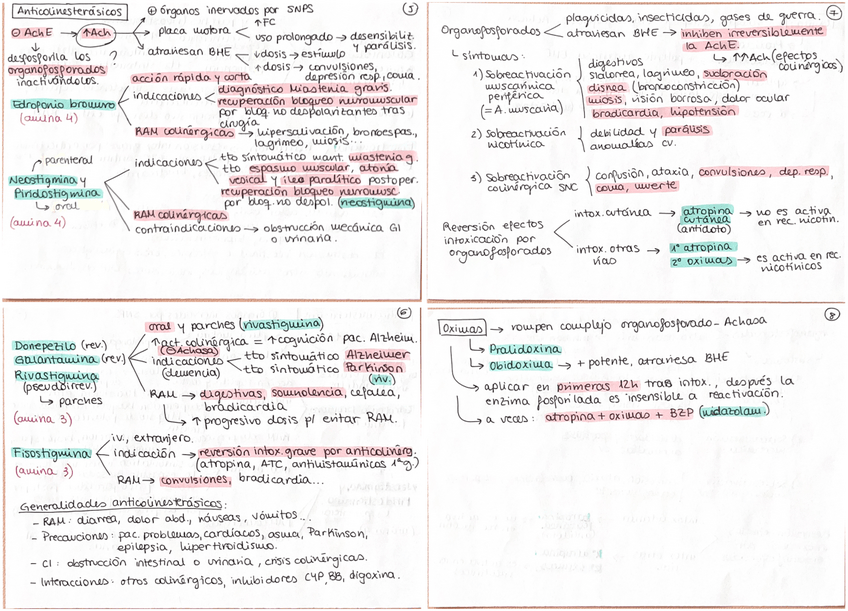 Anticolinesterásicos
5
⊕ órganos inervados por SNPS
⊖ AchE → ↑Ach → placa motora
↑FC
uso prolongado → desensibiliz. y parálisis.
atraviesan BHE
↓dosis → estímulo
↑dosis → convulsiones, depresión resp, coma.
desfosforila los organofosforados inactivándolos.
?
Edrofonio bromuro
(amina 4)
acción rápida y corta
indicaciones
diagnóstico Miastenia gravis.
recuperación bloqueo neuromuscular
por bloq. no despolarizantes tras
cirugía
RAM colinérgicas → hipersalivación, broncoespas.,
lagrimeo, miosis...
parenteral
Neostigmina y
Piridostigmina
↳ oral
(amina 4)
indicaciones
tto sintomático mant. miastenia g.
tto espasmo muscular, atonía
vesical y íleo paralítico postoper.
recuperación bloqueo neuromusc
por bloq. no despol. (neostigmina)
RAM colinérgicas
contraindicaciones → obstrucción mecánica GI
o urinaria.
6
Donepezilo (rev.)
Galantamina (rev.)
Rivastigmina
(pseudoirrev.)
↳ parches
(amina 3)
oral y parches (rivastigmina)
↑act. colinérgica = ↑cognición pac. Alzheim.
(⊖Achasa)
indicaciones
(demencia)
tto sintomático Alzheimer
tto sintomático Parkinson
(riv.)
RAM → digestivas, somnolencia, cefalea,
bradicardia
↳ ↑ progresivo dosis p/ evitar RAM.
Fisostigmina
(amina 3)
i.v., extranjero.
indicación → reversión intox. grave por anticolinérg.
(atropina, ATC, antihistamínicos 1ªg.)
RAM → convulsiones, bradicardia...
Generalidades anticolinesterásicos:
- RAM: diarrea, dolor abd., náuseas, vómitos...
- Precauciones: pac. problemas cardíacos, asma, Parkinson,
epilepsia, hipertiroidismo.
- CI: obstrucción intestinal o urinaria, crisis colinérgicas.
- Interacciones: otros colinérgicos, inhibidores CYP, BB, digoxina.
7
Organofosforados
plaguicidas, insecticidas, gases de guerra.
atraviesan BHE → inhiben irreversiblemente
la AchE.
↳ ↑↑Ach (efectos
colinérgicos)
↳ síntomas:
1) Sobreactivación
muscarínica
periférica
(= A. muscaria)
digestivos
sialorrea, lagrimeo, sudoración
disnea (broncoconstricción)
miosis, visión borrosa, dolor ocular
bradicardia, hipotensión
2) Sobreactivación
nicotínica
debilidad y parálisis
anomalías cv.
3) Sobreactivación
colinérgica SNC
confusión, ataxia, convulsiones, dep. resp,
coma, muerte
Reversión efectos
intoxicación por
organofosforados
intox. cutánea → atropina
cutánea
(antídoto)
→ no es activa
en rec. nicotín.
intox. otras
vías
→ 1º atropina
2º oximas → es activa en rec.
nicotínicos
8
Oximas → rompen complejo organofosforado - Achasa
→ Pralidoxina
→ Obidoxima → + potente, atraviesa BHE
→ aplicar en primeras 12h tras intox., después la
enzima fosforilada es insensible a reactivación.
→ a veces: atropina + oximas + BZP (midazolam.)